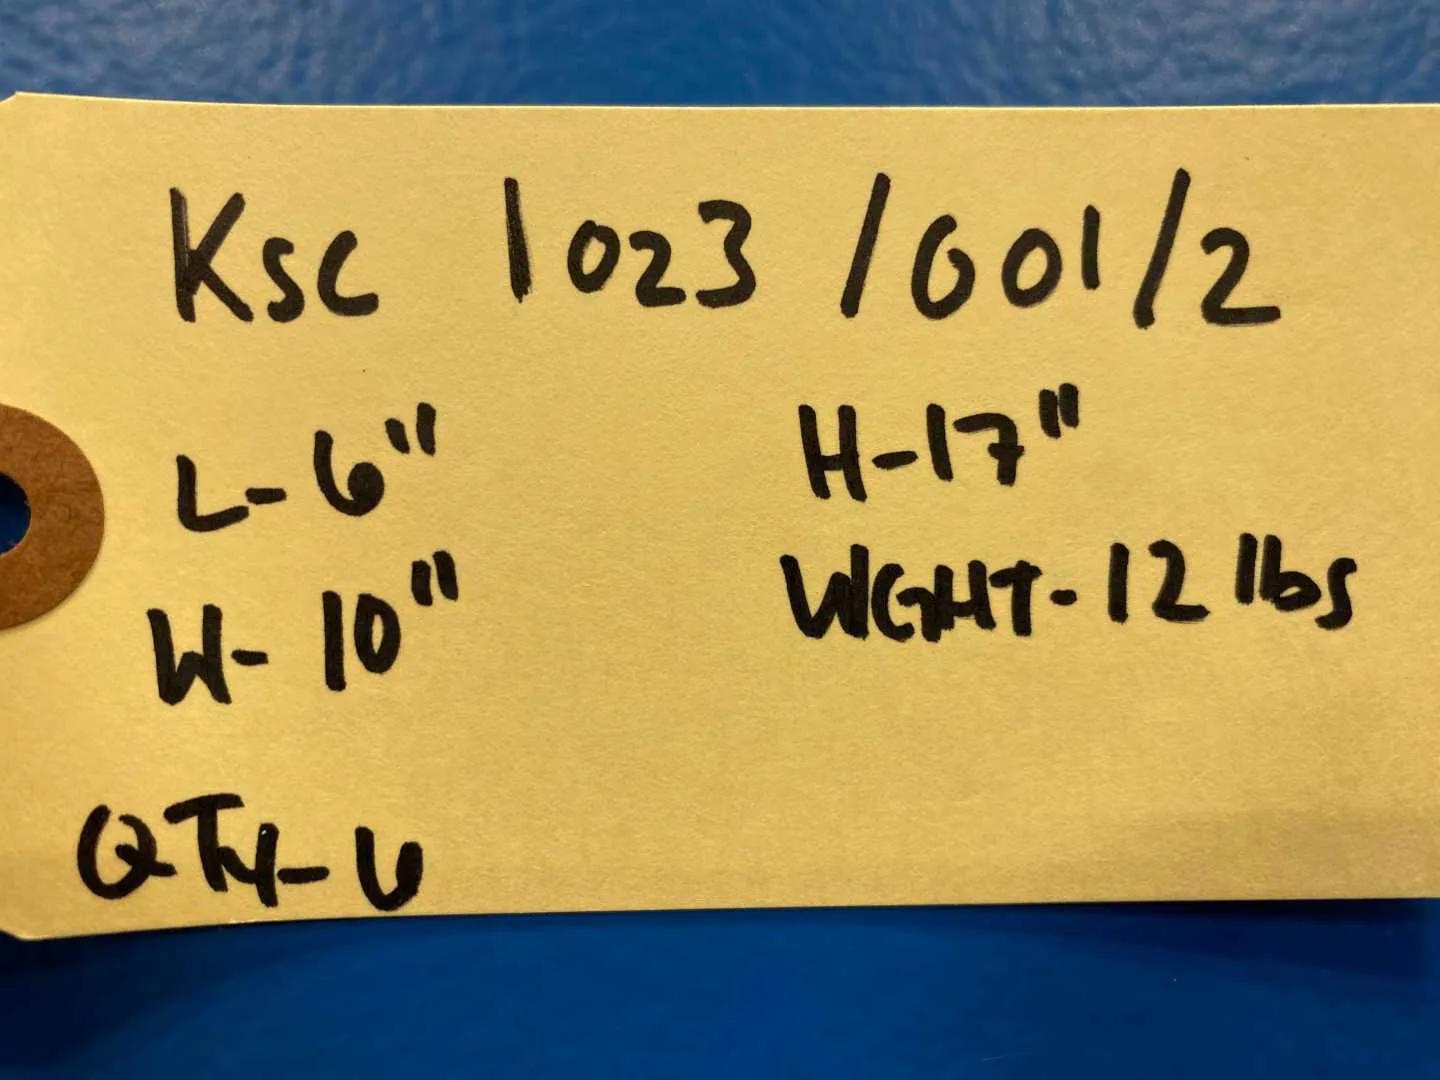 KSC 1023 /001/2
L- 6" H-17"
W- 10" WGHT-12 lbs
QTY- 6